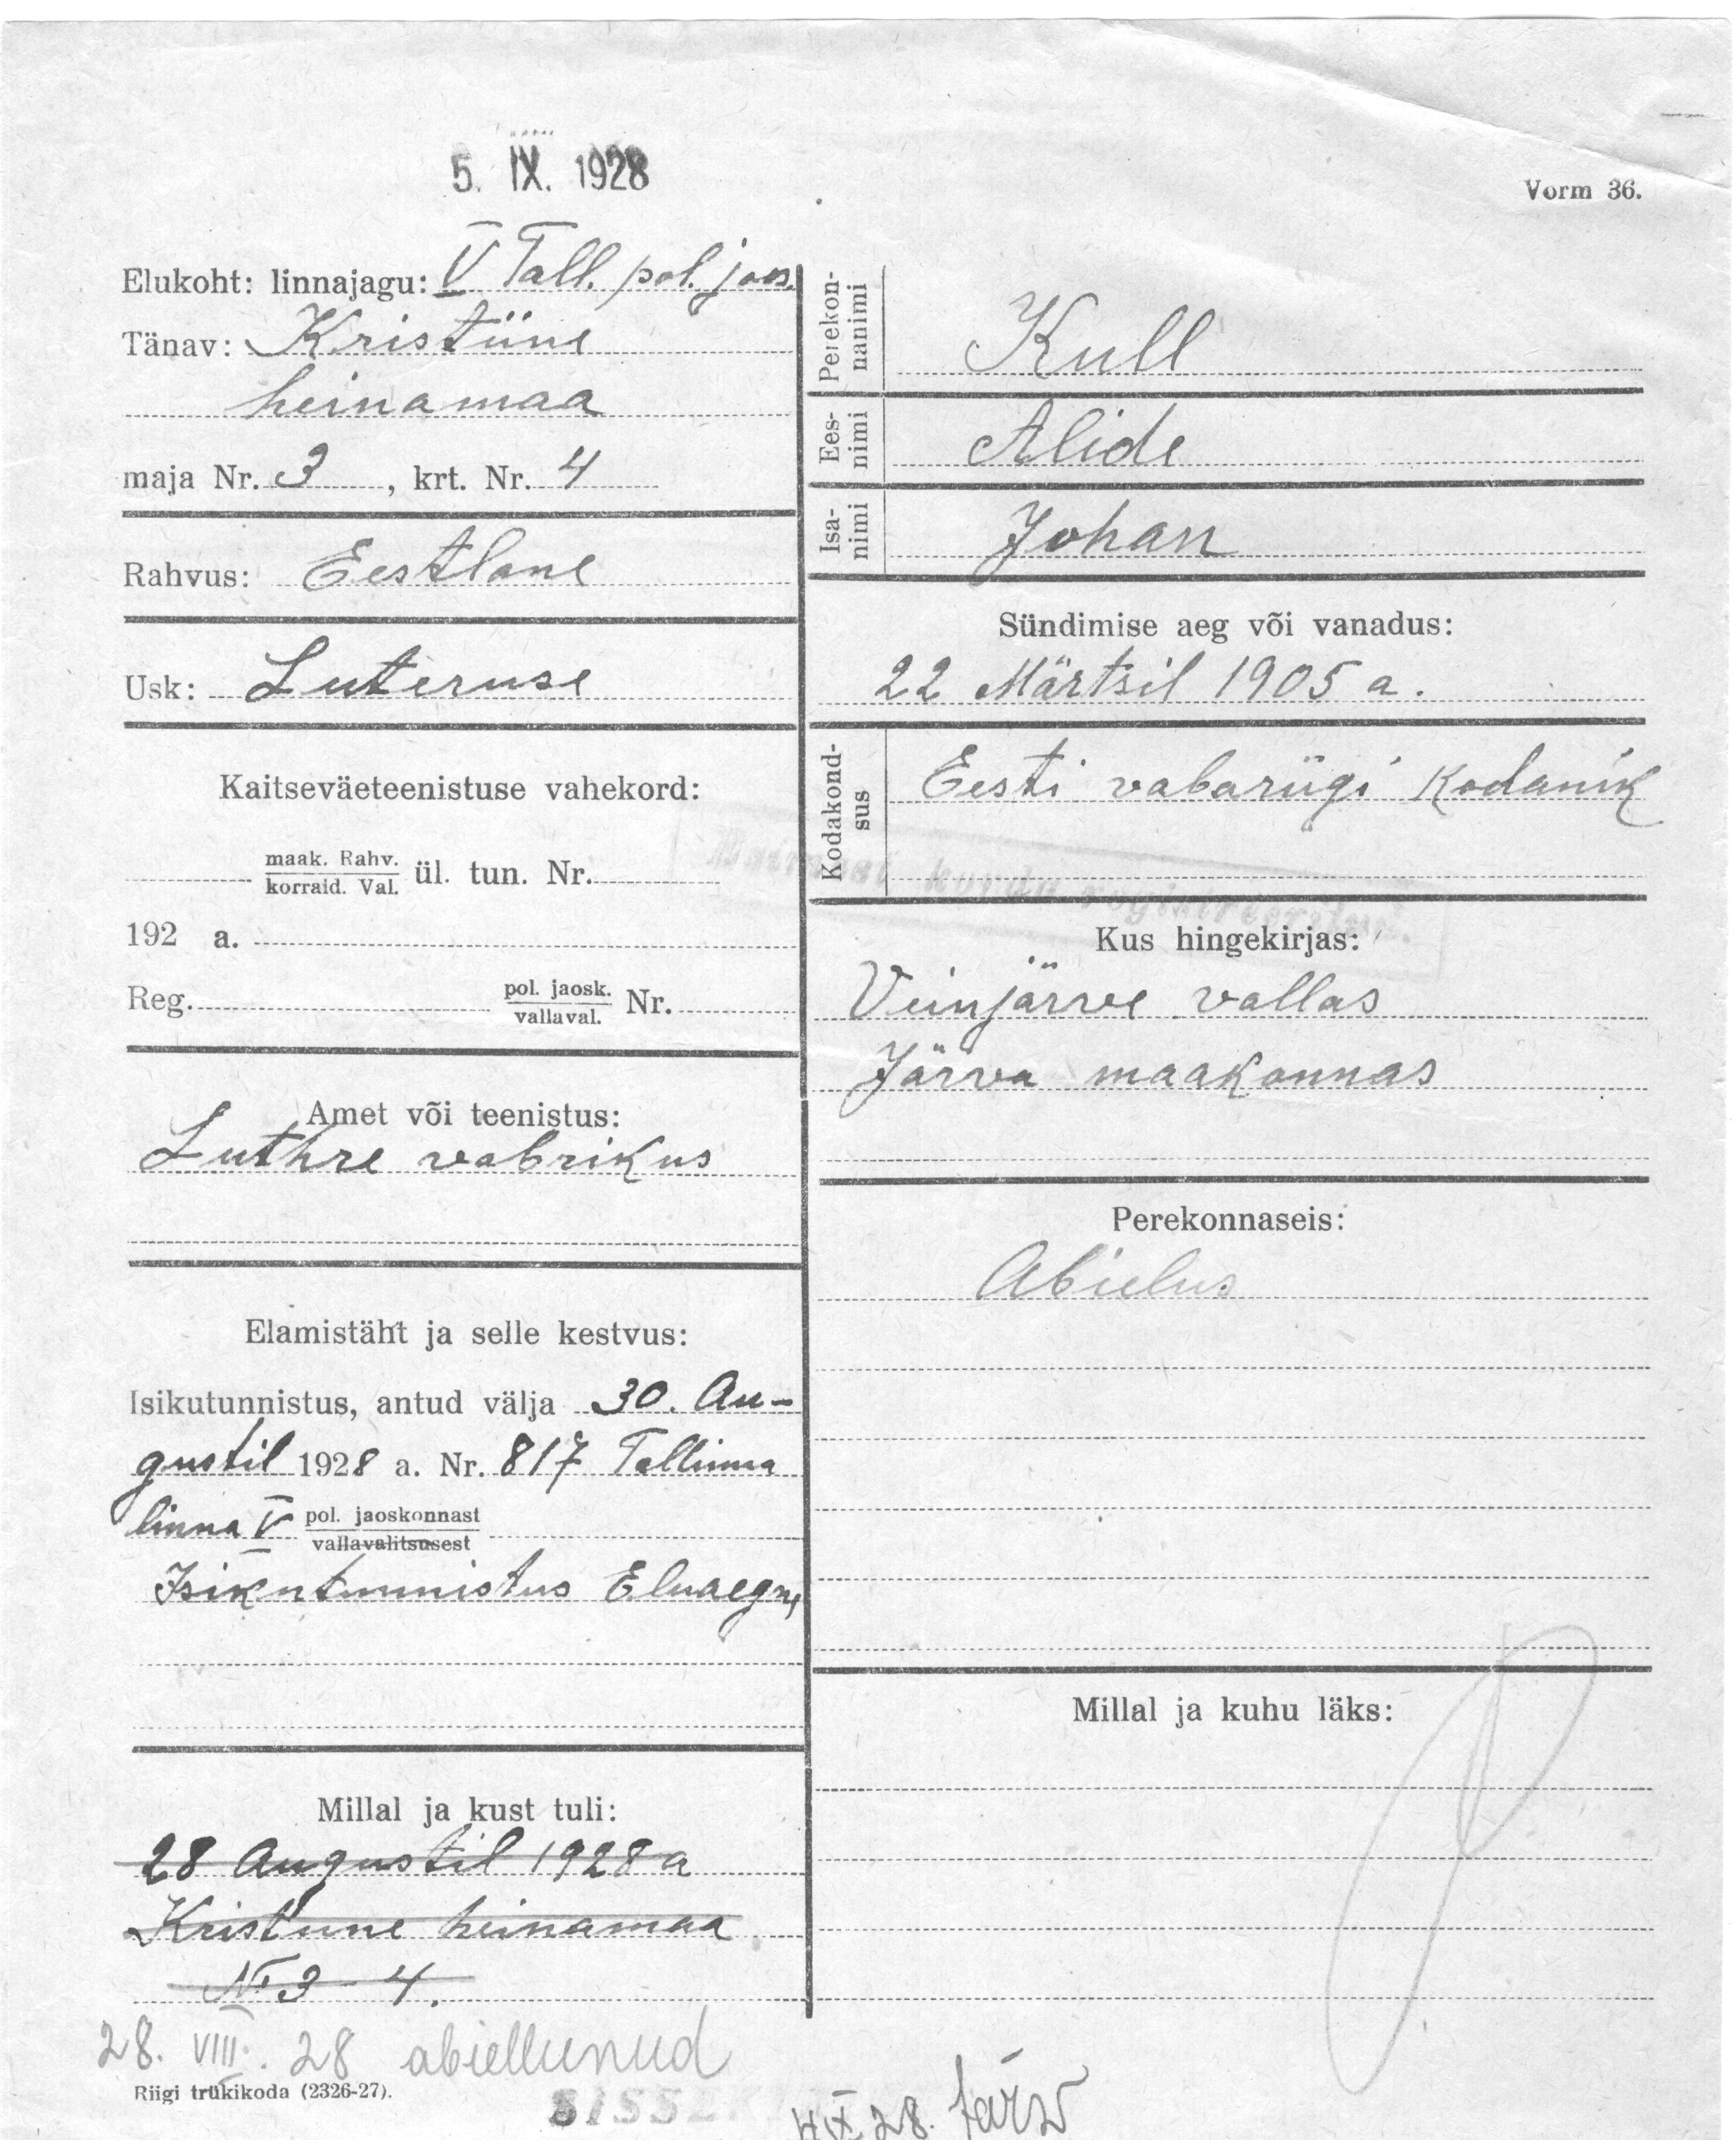 5. IX. 1928
Vorm 36.
Elukoht: linnajagu: V Tall. pol. jaos.
Tänav: Kristiine
heinamaa
maja Nr. 3, krt. Nr. 4
Rahvus: Eestlane
Usk: Luteruse
Kaitseväeteenistuse vahekord:
maak. Rahv.
korraid. Val. ül. tun. Nr.
192 a.
Reg. pol. jaosk.
vallaval. Nr.
Amet või teenistus:
Luthre vabrikus
Elamistäht ja selle kestvus:
Isikutunnistus, antud välja 30. Au-
gustil 1928 a. Nr. 817 Tallinna
linna V pol. jaoskonnast
vallavalitsusest
Isikutunnistus Eluaegne
Millal ja kust tuli:
28 Augustil 1928 a
Kristiine heinamaa
№ 3 - 4.
28. VIII. 28 abiellunud
Riigi trükikoda (2326-27).
Perekon-
nanimi
Kull
Ees-
nimi
Alide
Isa-
nimi
Johan
Sündimise aeg või vanadus:
22 Märtsil 1905 a.
Kodakond-
sus
Eesti vabariigi Kodanik
registreeritud.
Kus hingekirjas:
Veinjärve vallas
Järva maakonnas
Perekonnaseis:
Abielus
Millal ja kuhu läks:
IX 28.